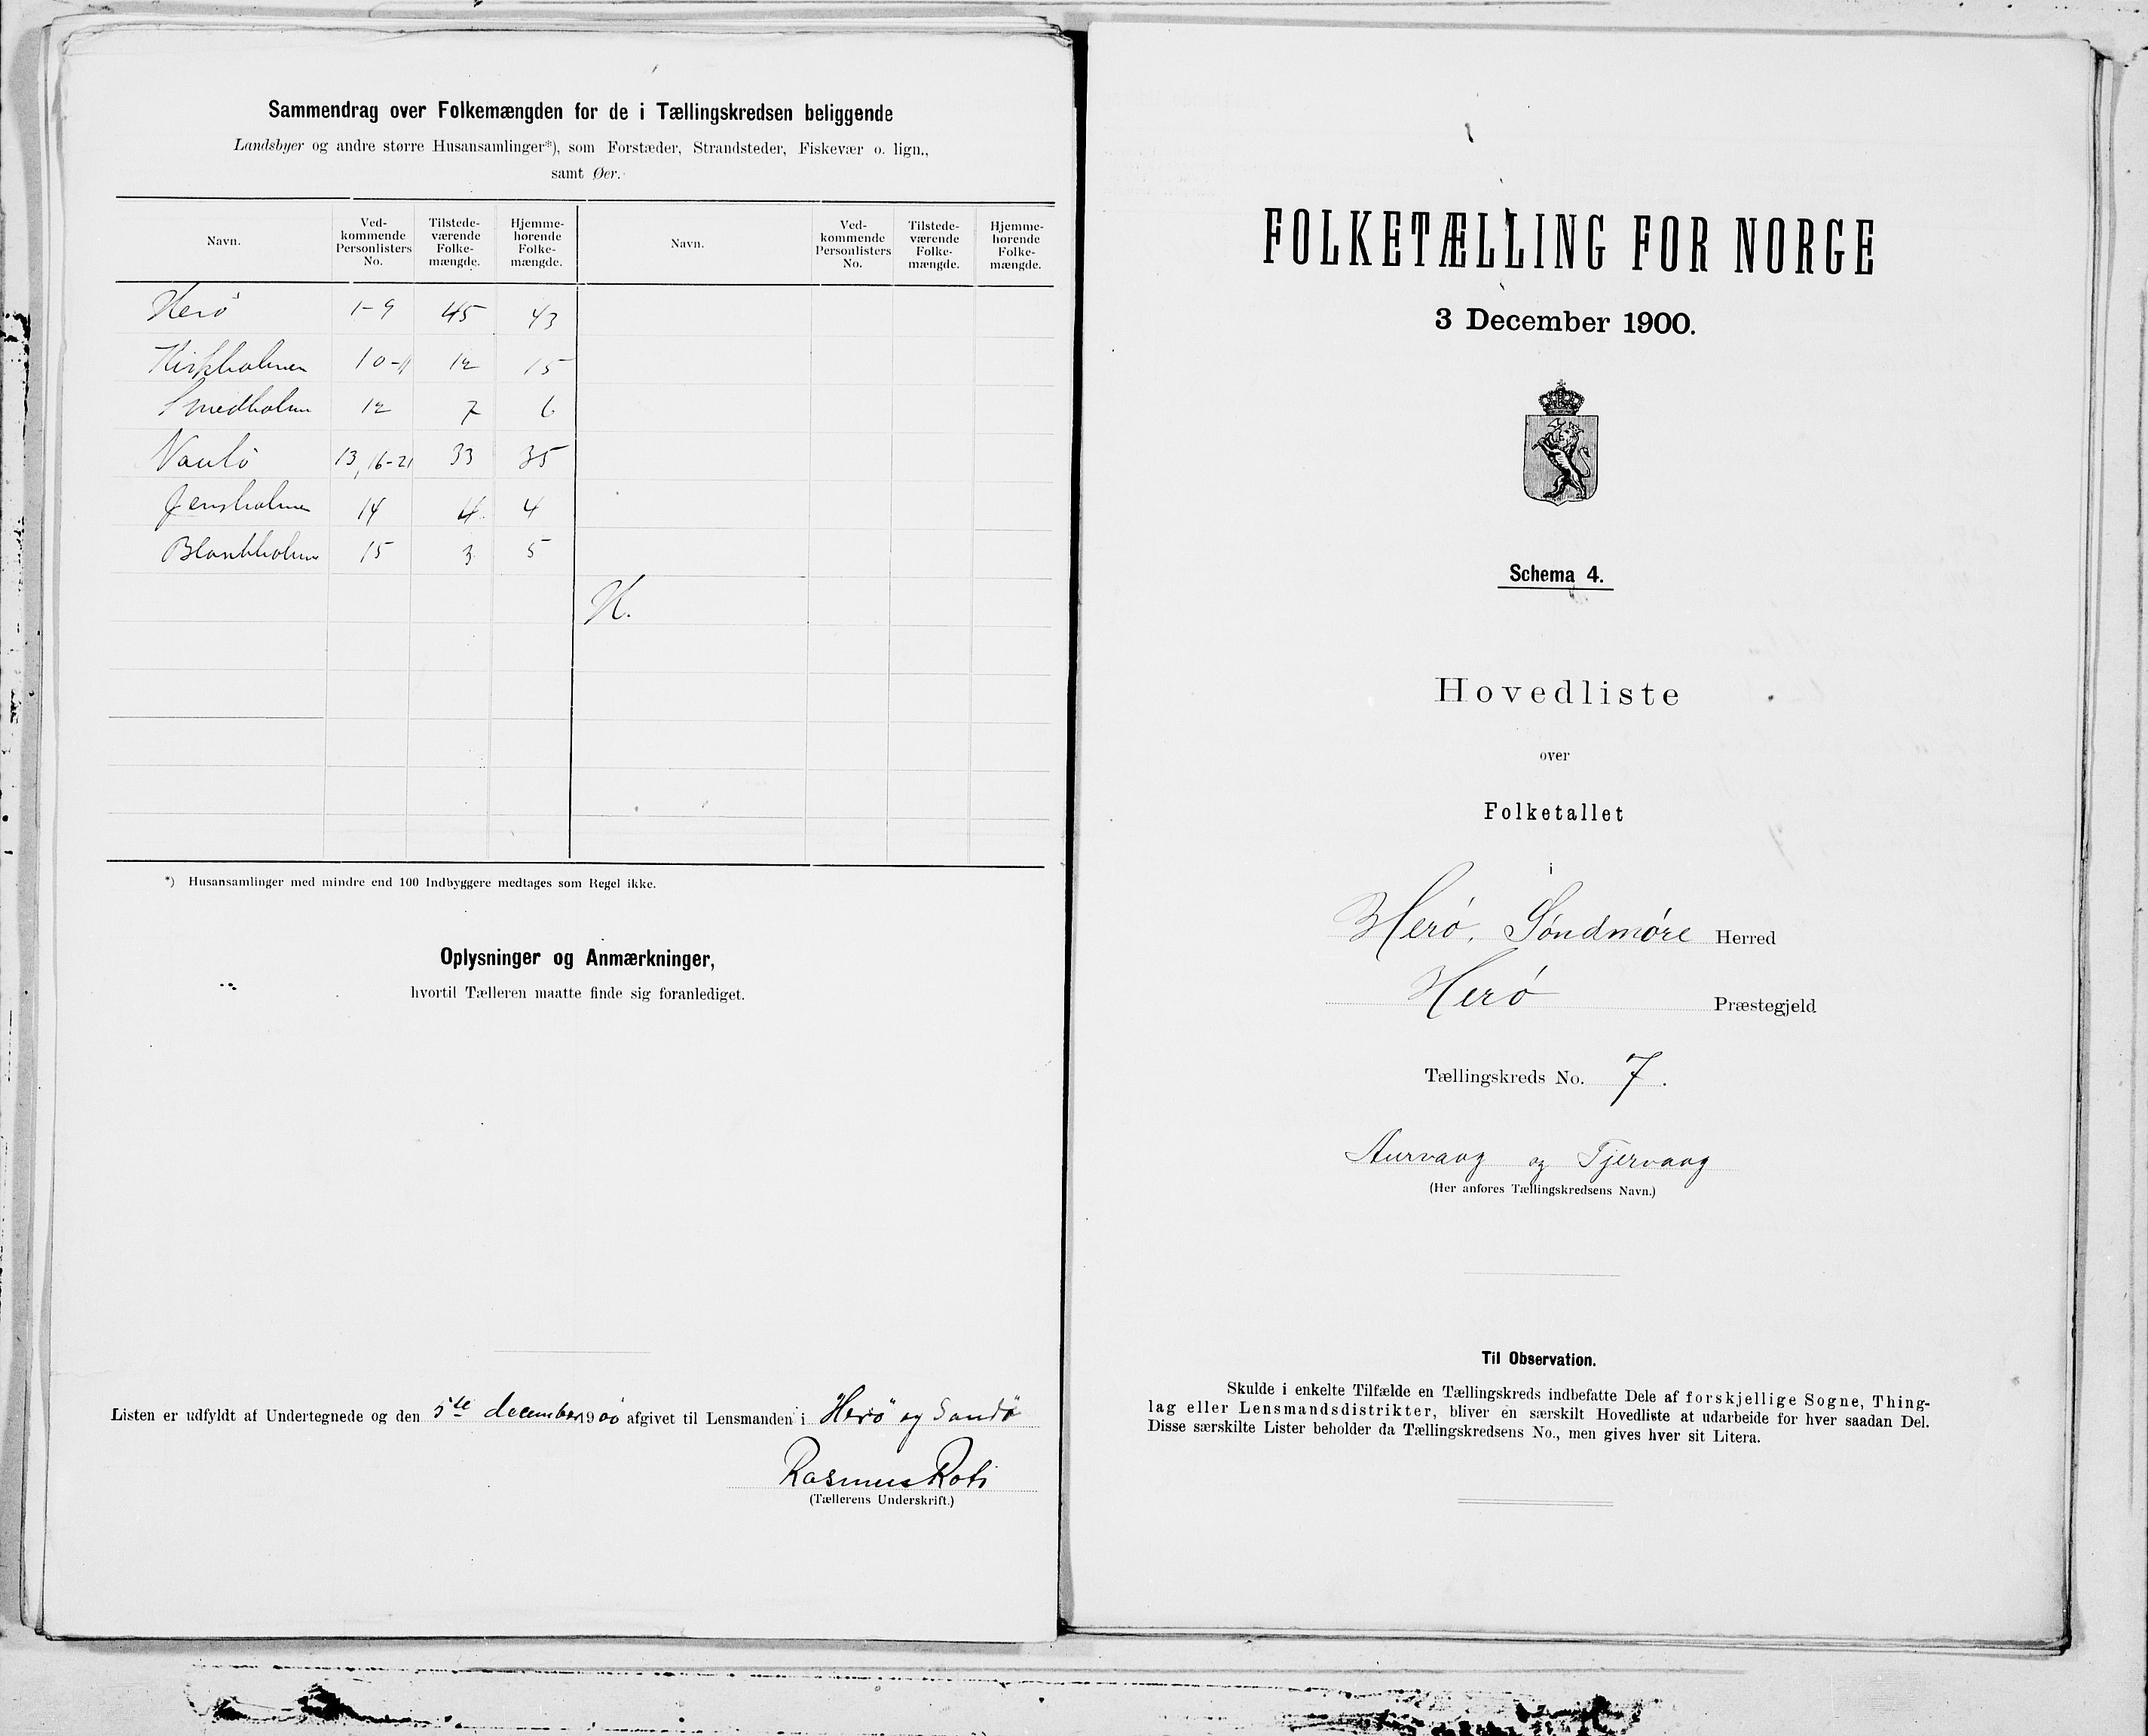 Sammendrag over Folkemængden for de i Tællingskredsen beliggende
Landsbyer og andre større Husansamlinger*), som Forstæder, Strandsteder, Fiskevær o. lign.,
samt Øer.
Navn. Ved-kommende Personlisters No. Tilstede-værende Folke-mængde. Hjemme-hørende Folke-mængde. Navn. Ved-kommende Personlisters No. Tilstede-værende Folke-mængde. Hjemme-hørende Folke-mængde.
Herö 1-9 45 43
Kirkholmen 10-11 12 15
Smedholm 12 7 6
13, 16-21 33 35
Jensholmen 14 4 4
Blankholmen 15 3 5
H.
*) Husansamlinger med mindre end 100 Indbyggere medtages som Regel ikke.
Oplysninger og Anmærkninger,
hvortil Tælleren maatte finde sig foranlediget.
Listen er udfyldt af Undertegnede og den 5te december 1900 afgivet til Lensmanden i Herö og Sandö
Rasmus
(Tællerens Underskrift.)
FOLKETÆLLING FOR NORGE
3 December 1900.
Schema 4.
Hovedliste
over
Folketallet
i
Herø, Søndmøre Herred
Herø Præstegjeld
Tællingskreds No. 7.
Aurvaag og Tjervaag
(Her anføres Tællingskredsens Navn.)
Til Observation.
Skulde i enkelte Tilfælde en Tællingskreds indbefatte Dele af forskjellige Sogne, Thing-
lag eller Lensmandsdistrikter, bliver en særskilt Hovedliste at udarbeide for hver saadan Del.
Disse særskilte Lister beholder da Tællingskredsens No., men gives hver sit Litera.